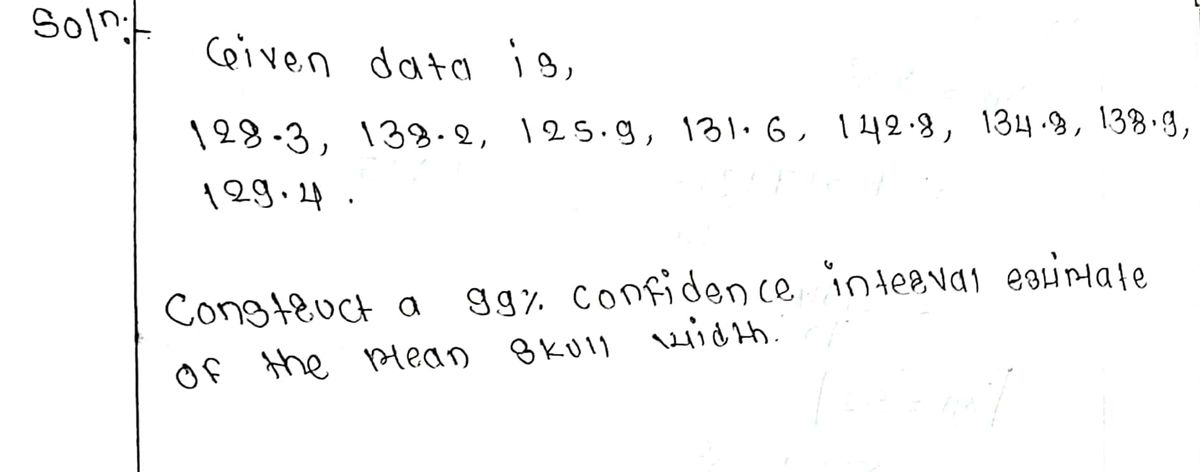 Soln:-
Given data is,
128.3, 138.2, 125.9, 131.6, 142.8, 134.8, 138.9,
129.4.
Construct a 99% confidence interval estimate
of the mean skull width.